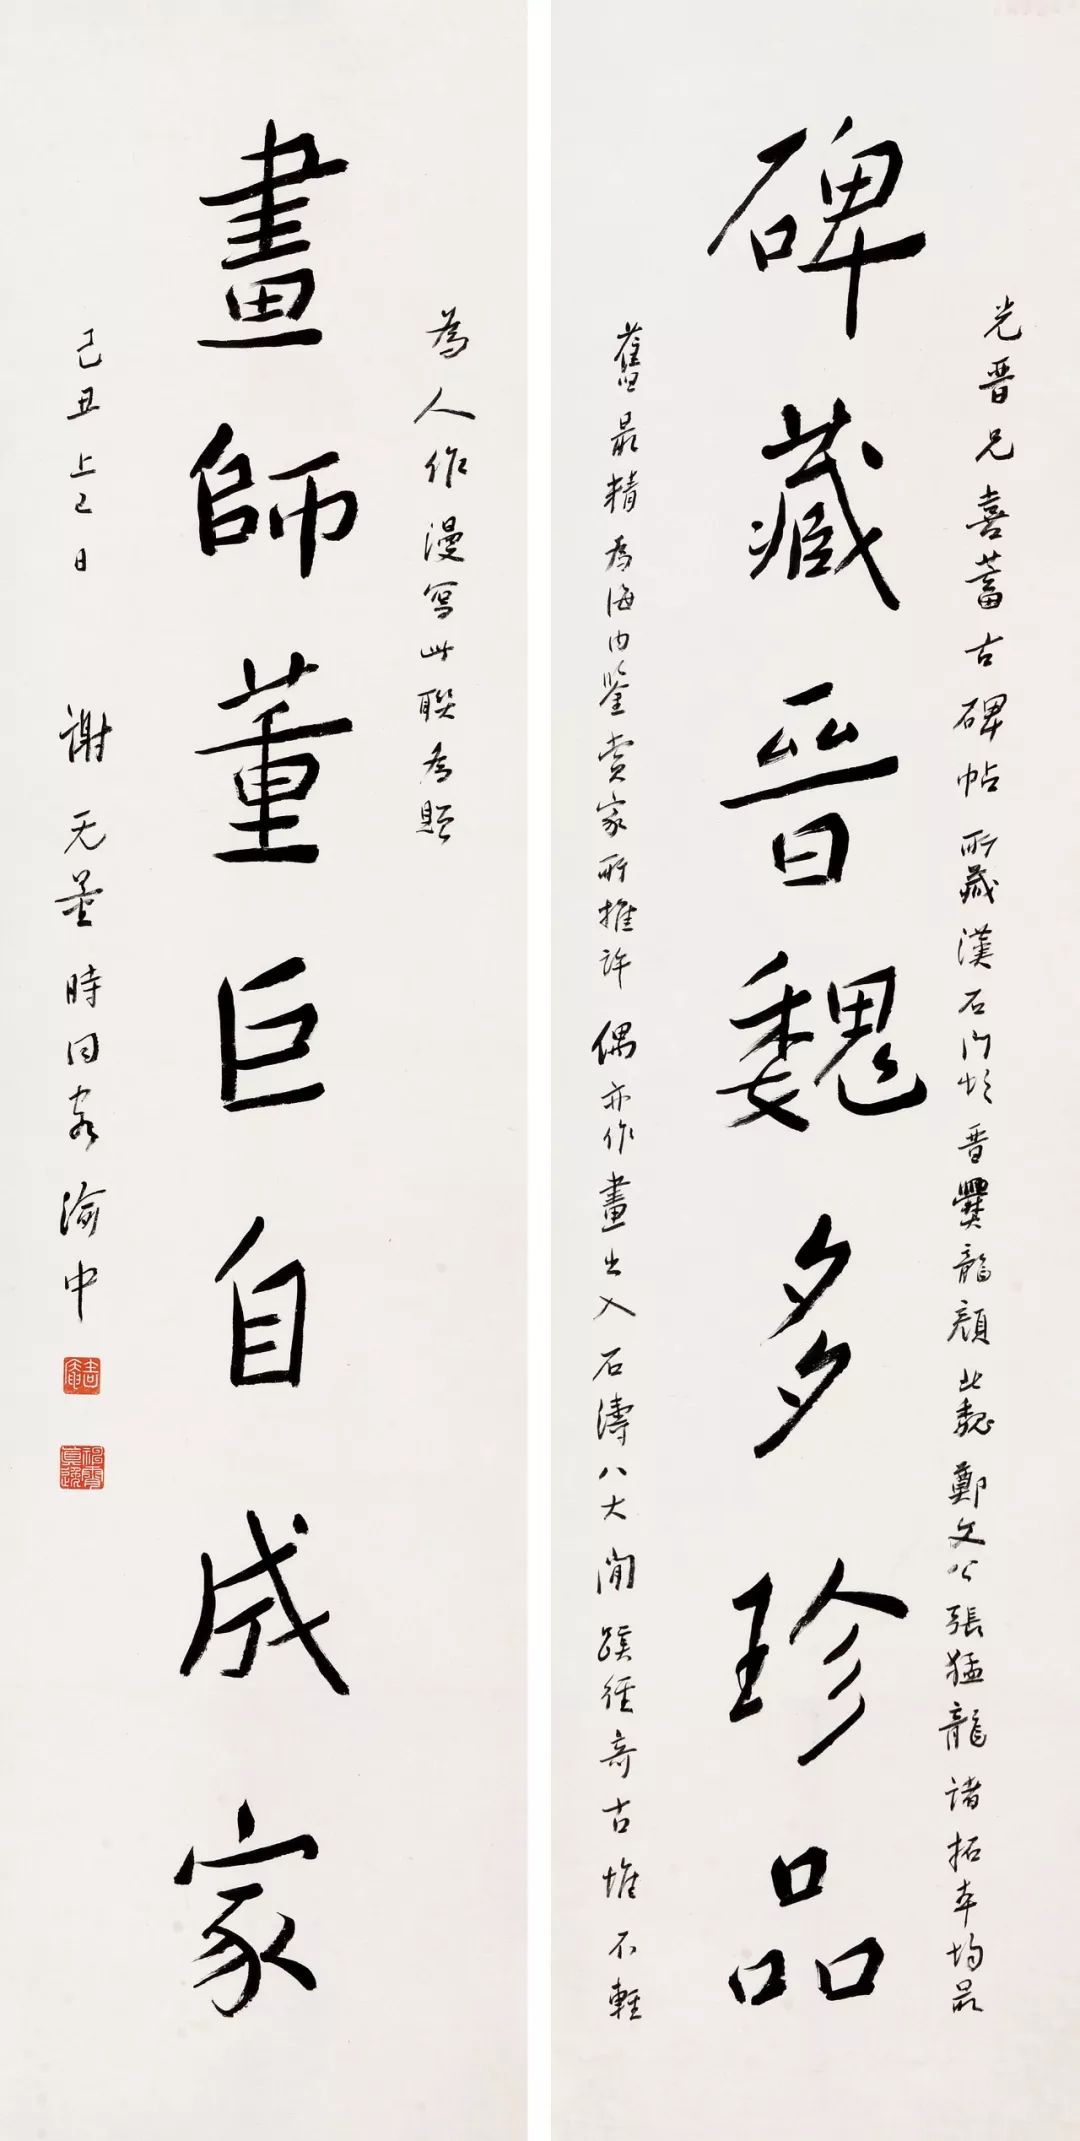 光晋兄喜蓄古碑帖所藏漢石門頌晋爨龍顏北魏鄭文公張猛龍諸拓本均最
碑藏晉魏多珍品
舊最精為海内鑒賞家所推許偶亦作畫出入石濤八大間蹊徑奇古惟不輕
為人作漫寫此聯為
畫師董巨自成家
己丑上巳日 謝无量時同客渝中